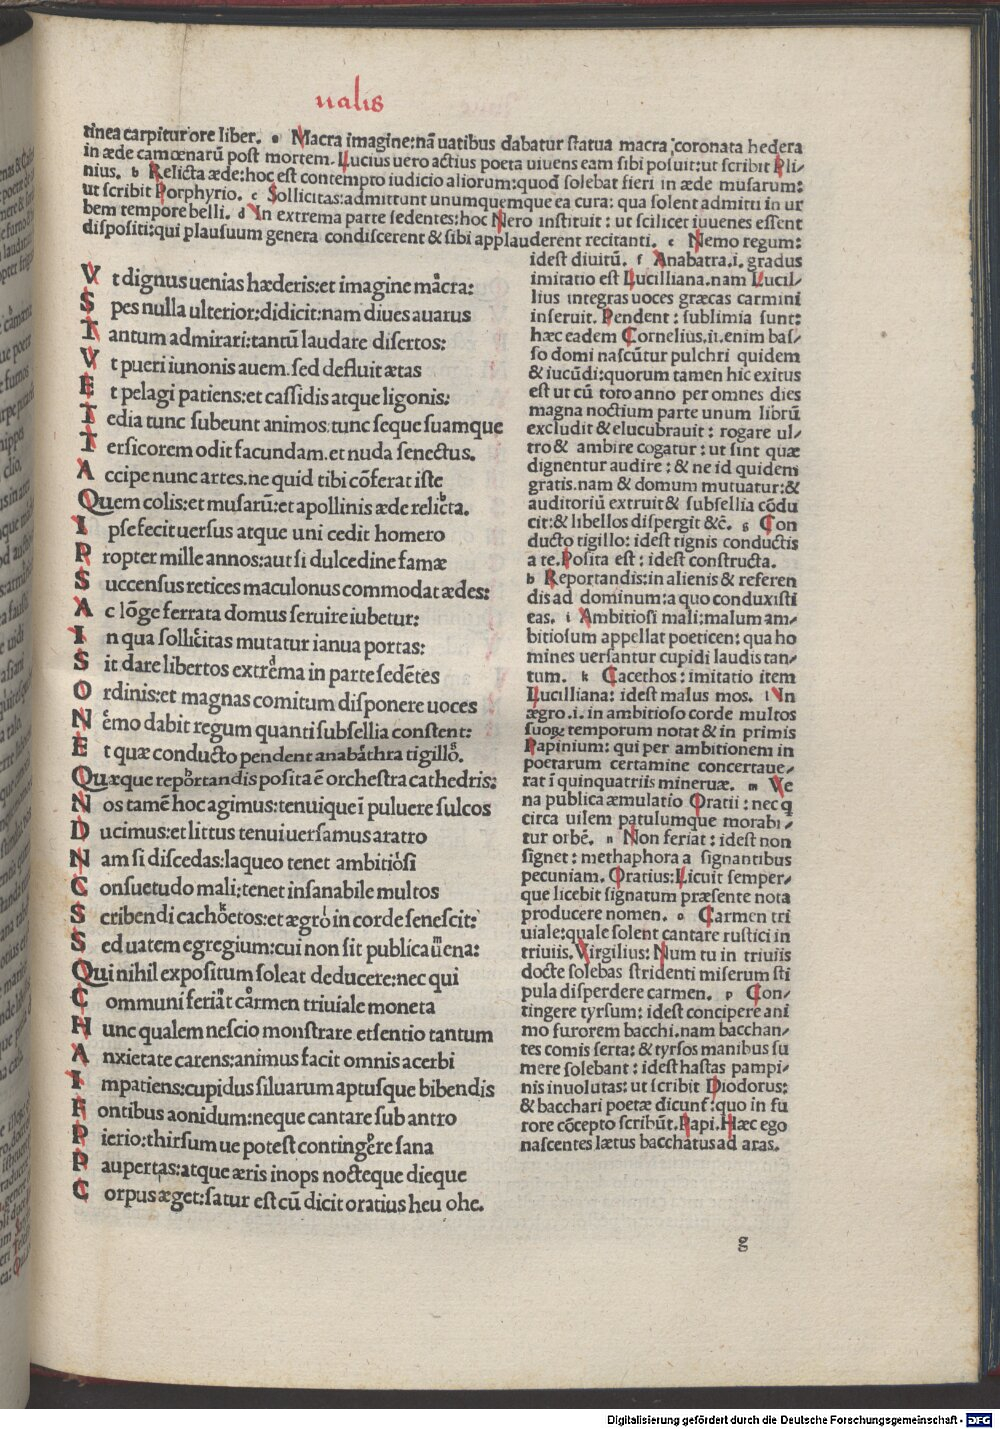 ualis
tinea carpitur ore liber. a Macra imagine:nã uatibus dabatur statua macra coronata hedera
in æde camœnarũ post mortem. Lucius uero actius poeta uiuens eam sibi posuit:ut scribit Pli/
nius. b Relicta æde:hoc est contempto iudicio aliorum:quod solebat fieri in æde musarum:
ut scribit Porphyrio. c Sollicitas:admittunt unumquemque ea cura: qua solent admitti in ur
bem tempore belli. d In extrema parte sedentes:hoc Nero instituit : ut scilicet iuuenes essent
dispositi:qui plausuum genera condiscerent & sibi applauderent recitanti. e Nemo regum:
V t dignus uenias hæderis:et imagine macra:
S pes nulla ulterior:didicit:nam diues auarus
T antum admirari:tantũ laudare disertos:
V t pueri iunonis auem.sed defluit ætas
E t pelagi patiens:et cassidis atque ligonis:
T edia tunc subeunt animos:tunc seque suamque
T ersicorem odit facundam.et nuda senectus.
A ccipe nunc artes.ne quid tibi cõferat iste
Quem colis:et musarũ:et apollinis æde relicta.
I pse fecit uersus atque uni cedit homero
P ropter mille annos:aut si dulcedine famæ
S uccensus retices maculonus commodat ædes:
A c lõge ferrata domus seruire iubetur:
I n qua sollicitas mutatur ianua portas:
S it dare libertos extrema in parte sedẽtes
O rdinis:et magnas comitum disponere uoces
N emo dabit regum quanti subsellia constent:
E t quæ conducto pendent anabathra tigillo.
Quæque reportandis posita ẽ orchestra cathedris:
N os tamẽ hoc agimus:tenuique ĩ puluere sulcos
D ucimus:et littus tenui uersamus aratro
N am si discedas:laqueo tenet ambitiosi
C onsuetudo mali:tenet insanabile multos
S cribendi cachoetos:et ægro in corde senescit:
S ed uatem egregium:cui non sit publica uena:
Qui nihil expositum soleat deducere:nec qui
C ommuni feriat carmen triuiale moneta
H unc qualem nescio monstrare et sentio tantum
A nxietate carens:animus facit omnis acerbi
I mpatiens:cupidus siluarum aptusque bibendis
F ontibus aonidum:neque cantare sub antro
P ierio:thirsum ue potest contingere sana
P aupertas:atque æris inops nocteque dieque
C orpus æget:satur est cũ dicit oratius heu ohe.
idest diuitũ. f Anabatra.i. gradus
imitatio est Lucilliana.nam Lucil/
lius integras uoces græcas carmini
inseruit. Pendent : sublimia sunt:
hæc eadem Cornelius.ii.enim bas/
so domi nascũtur pulchri quidem
& iucũdi:quorum tamen hic exitus
est ut cũ toto anno per omnes dies
magna noctium parte unum librũ
excludit & elucubrauit : rogare ul/
tro & ambire cogatur : ut sint quæ
dignentur audire : & ne id quidem
gratis.nam & domum mutuatur:&
auditoriũ extruit & subsellia cõdu
cit:& libellos dispergit &c̃. g Con
ducto tigillo: idest tignis conductis
a te. Posita est : idest constructa.
h Reportandis:in alienis & referen
dis ad dominum:a quo conduxisti
eas. i Ambitiosi mali:malum am/
bitiosum appellat poeticen: qua ho
mines uersantur cupidi laudis tan/
tum. k Cacethos: imitatio item
Lucilliana: idest malus mos. l In
ægro.i.in ambitioso corde multos
suoꝝ temporum notat & in primis
Papinium: qui per ambitionem in
poetarum certamine concertaue/
rat ĩ quinquatriis mineruæ. m Ve
na publica æmulatio Oratii : nec q
circa uilem patulumque morabi/
tur orbẽ. n Non feriat : idest non
signet : methaphora a signantibus
pecuniam. Oratius:Licuit semper/
que licebit signatum præsente nota
producere nomen. o Carmen tri
uiale:quale solent cantare rustici in
triuiis. Virgilius: Num tu in triuiis
docte solebas stridenti miserum sti
pula disperdere carmen. p Con/
tingere tyrsum: idest concipere ani
mo furorem bacchi.nam bacchan/
tes comis serta: & tyrsos manibus su
mere solebant : idest hastas pampi/
nis inuolutas: ut scribit Diodorus:
& bacchari poetæ dicunt:quo in fu
rore cõcepto scribũt. Papi. Hæc ego
nascentes lætus bacchatus ad aras.
g
Digitalisierung gefördert durch die Deutsche Forschungsgemeinschaft - DFG